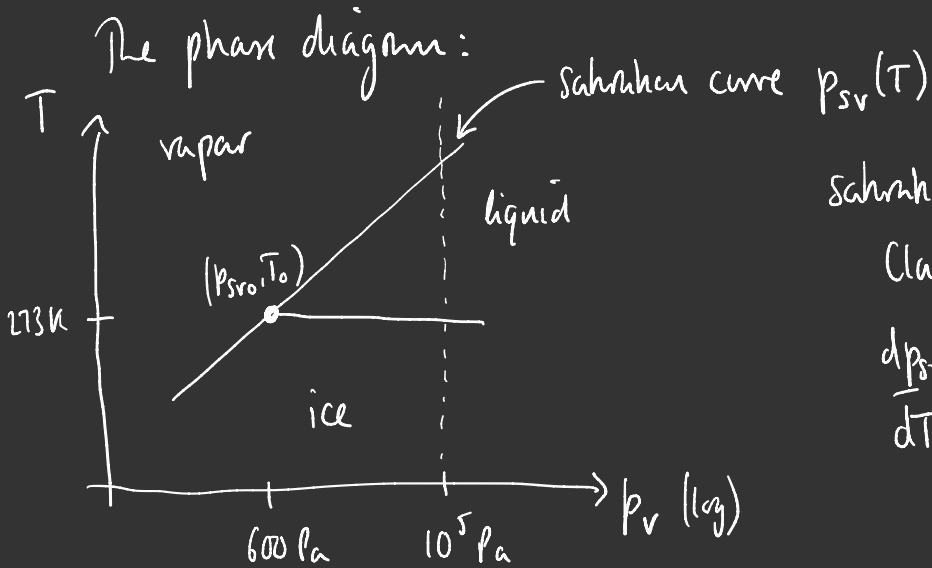 The phase diagram:
saturation curve p_sv(T)
T
vapor
liquid
(p_sv0, T_0)
273K
ice
600 Pa
10^5 Pa
p_v (log)
dp_s
dT